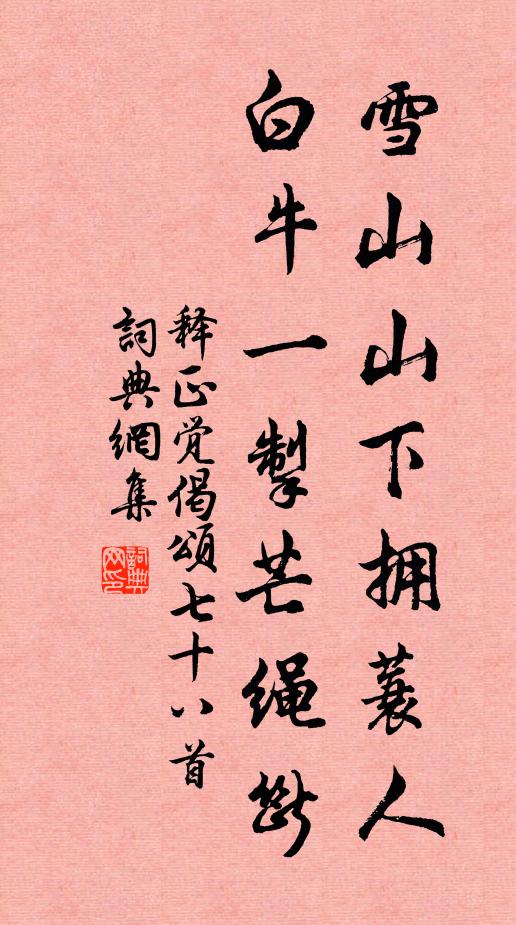 雪山山下拥蓑人
白牛一掣芒绳断
释正觉偈颂七十八首
詞典網集
詞典
网印